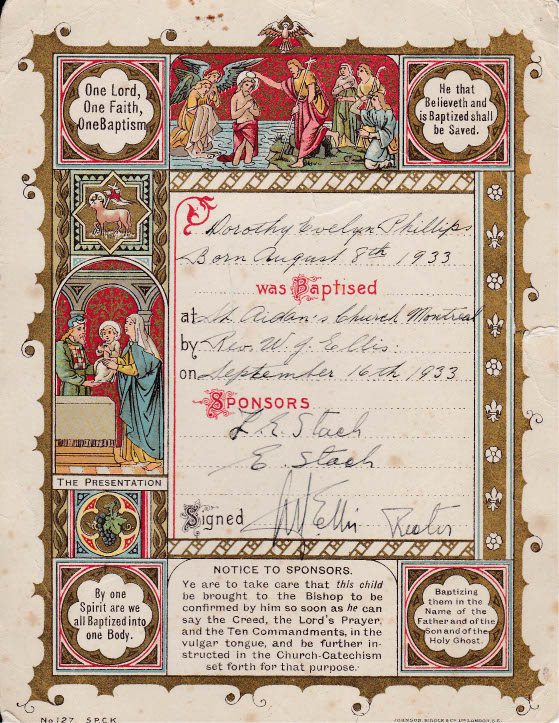 One Lord,
One Faith,
One Baptism
He that
Believeth and
is Baptized shall
be Saved.
Dorothy Evelyn Phillips
Born August 8th 1933
was Baptised
at St. Aidan's Church Montreal
by Rev. W. J. Ellis.
on September 16th 1933
SPONSORS
E. Stach
THE PRESENTATION
Signed Ellis Rector
By one
Spirit are we
all Baptized into
one Body.
NOTICE TO SPONSORS.
Ye are to take care that this child
be brought to the Bishop to be
confirmed by him so soon as he can
say the Creed, the Lord's Prayer,
and the Ten Commandments, in the
vulgar tongue, and be further in-
structed in the Church-Catechism
set forth for that purpose.
Baptizing
them in the
Name of the
Father and of the
Son and of the
Holy Ghost.
No 127. S.P.C.K.